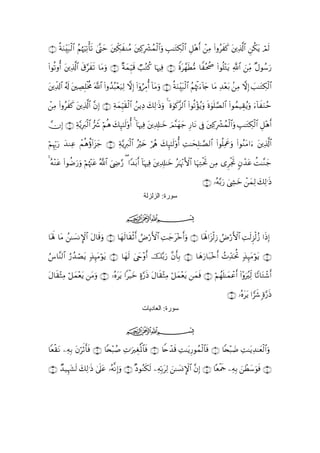 لَمْ يَكُنِ ٱلَّذِينَ كَفَرُوا۟ مِنْ أَهْلِ ٱلْكِتَٰبِ وَٱلْمُشْرِكِينَ مُنفَكِّينَ حَتَّىٰ تَأْتِيَهُمُ ٱلْبَيِّنَةُ ۝
رَسُولٌ مِّنَ ٱللَّهِ يَتْلُوا۟ صُحُفًا مُّطَهَّرَةً ۝ فِيهَا كُتُبٌ قَيِّمَةٌ ۝ وَمَا تَفَرَّقَ ٱلَّذِينَ أُوتُوا۟
ٱلْكِتَٰبَ إِلَّا مِنۢ بَعْدِ مَا جَآءَتْهُمُ ٱلْبَيِّنَةُ ۝ وَمَآ أُمِرُوٓا۟ إِلَّا لِيَعْبُدُوا۟ ٱللَّهَ مُخْلِصِينَ لَهُ ٱلدِّينَ
حُنَفَآءَ وَيُقِيمُوا۟ ٱلصَّلَوٰةَ وَيُؤْتُوا۟ ٱلزَّكَوٰةَ ۚ وَذَٰلِكَ دِينُ ٱلْقَيِّمَةِ ۝ إِنَّ ٱلَّذِينَ كَفَرُوا۟ مِنْ
أَهْلِ ٱلْكِتَٰبِ وَٱلْمُشْرِكِينَ فِى نَارِ جَهَنَّمَ خَٰلِدِينَ فِيهَآ ۚ أُو۟لَٰٓئِكَ هُمْ شَرُّ ٱلْبَرِيَّةِ ۝ إِنَّ
ٱلَّذِينَ ءَامَنُوا۟ وَعَمِلُوا۟ ٱلصَّٰلِحَٰتِ أُو۟لَٰٓئِكَ هُمْ خَيْرُ ٱلْبَرِيَّةِ ۝ جَزَآؤُهُمْ عِندَ رَبِّهِمْ
جَنَّٰتُ عَدْنٍ تَجْرِى مِن تَحْتِهَا ٱلْأَنْهَٰرُ خَٰلِدِينَ فِيهَآ أَبَدًا ۖ رَّضِىَ ٱللَّهُ عَنْهُمْ وَرَضُوا۟ عَنْهُ ۚ
ذَٰلِكَ لِمَنْ خَشِىَ رَبَّهُۥ ۝
سورة: الزلزلة
بِسْمِ ٱللَّهِ ٱلرَّحْمَٰنِ ٱلرَّحِيمِ
إِذَا زُلْزِلَتِ ٱلْأَرْضُ زِلْزَالَهَا ۝ وَأَخْرَجَتِ ٱلْأَرْضُ أَثْقَالَهَا ۝ وَقَالَ ٱلْإِنسَٰنُ مَا لَهَا
۝ يَوْمَئِذٍ تُحَدِّثُ أَخْبَارَهَا ۝ بِأَنَّ رَبَّكَ أَوْحَىٰ لَهَا ۝ يَوْمَئِذٍ يَصْدُرُ ٱلنَّاسُ
أَشْتَاتًا لِّيُرَوْا۟ أَعْمَٰلَهُمْ ۝ فَمَن يَعْمَلْ مِثْقَالَ ذَرَّةٍ خَيْرًا يَرَهُۥ ۝ وَمَن يَعْمَلْ مِثْقَالَ
ذَرَّةٍ شَرًّا يَرَهُۥ ۝
سورة: العاديات
بِسْمِ ٱللَّهِ ٱلرَّحْمَٰنِ ٱلرَّحِيمِ
وَٱلْعَٰدِيَٰتِ ضَبْحًا ۝ فَٱلْمُورِيَٰتِ قَدْحًا ۝ فَٱلْمُغِيرَٰتِ صُبْحًا ۝ فَأَثَرْنَ بِهِۦ نَقْعًا
۝ فَوَسَطْنَ بِهِۦ جَمْعًا ۝ إِنَّ ٱلْإِنسَٰنَ لِرَبِّهِۦ لَكَنُودٌ ۝ وَإِنَّهُۥ عَلَىٰ ذَٰلِكَ لَشَهِيدٌ ۝